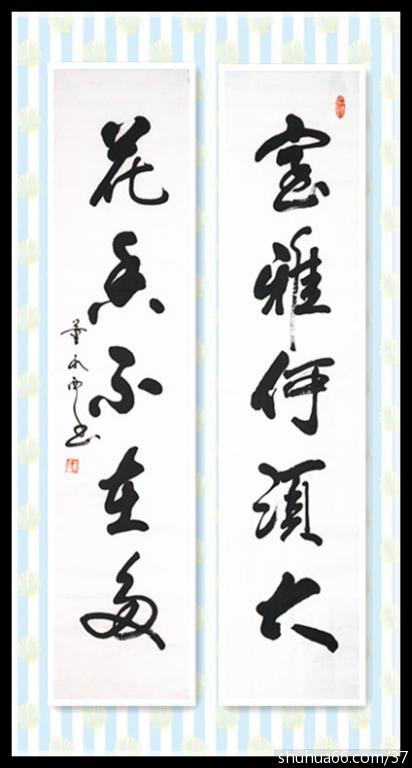 室雅何须大
花香不在多
shuhua66.com/37